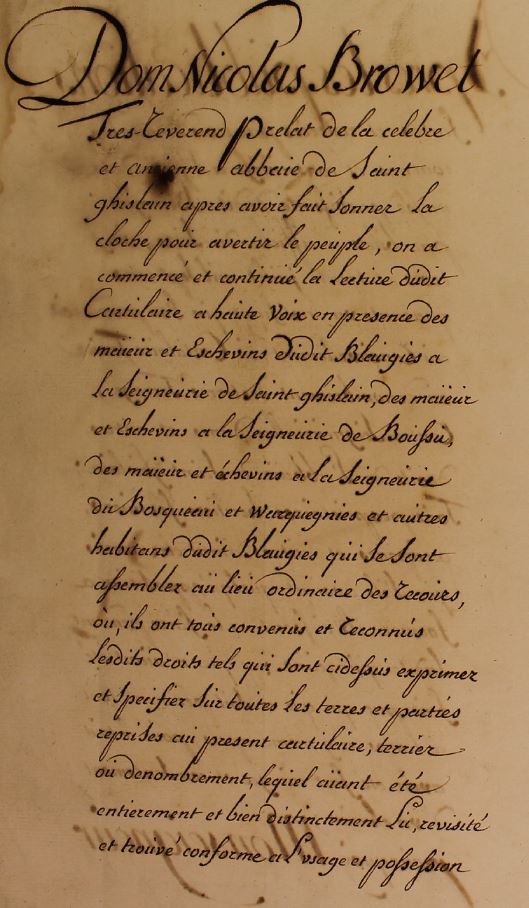 Dom Nicolas Browet
Tres-Reverend prelat de la celebre
et ancienne abbaie de Saint
ghislain apres avoir fait sonner la
cloche pour avertir le peuple, on a
commencé et continué la Lecture dudit
Cartulaire a haute Voix en presence des
maïeur et Eschevins dudit Blaugies a
la Seigneurie de Saint ghislain, des maïeur
et Eschevins a la Seigneurie de Boussu,
des maïeur et échevins a la Seigneurie
du Bosqueau et warquegnies et autres
habitans dudit Blaugies qui se sont
assembler au lieu ordinaire des recours,
où, ils ont tous convenus et reconnus
lesdits droits tels qui sont cidessus exprimer
et specifier sur toutes les terres et parties
reprises au present cartulaire, terrier
ou denombrement, lequel aiiant été
entierement et bien distinctement Lu, revisité
et trouvé conforme a l'usage et possession